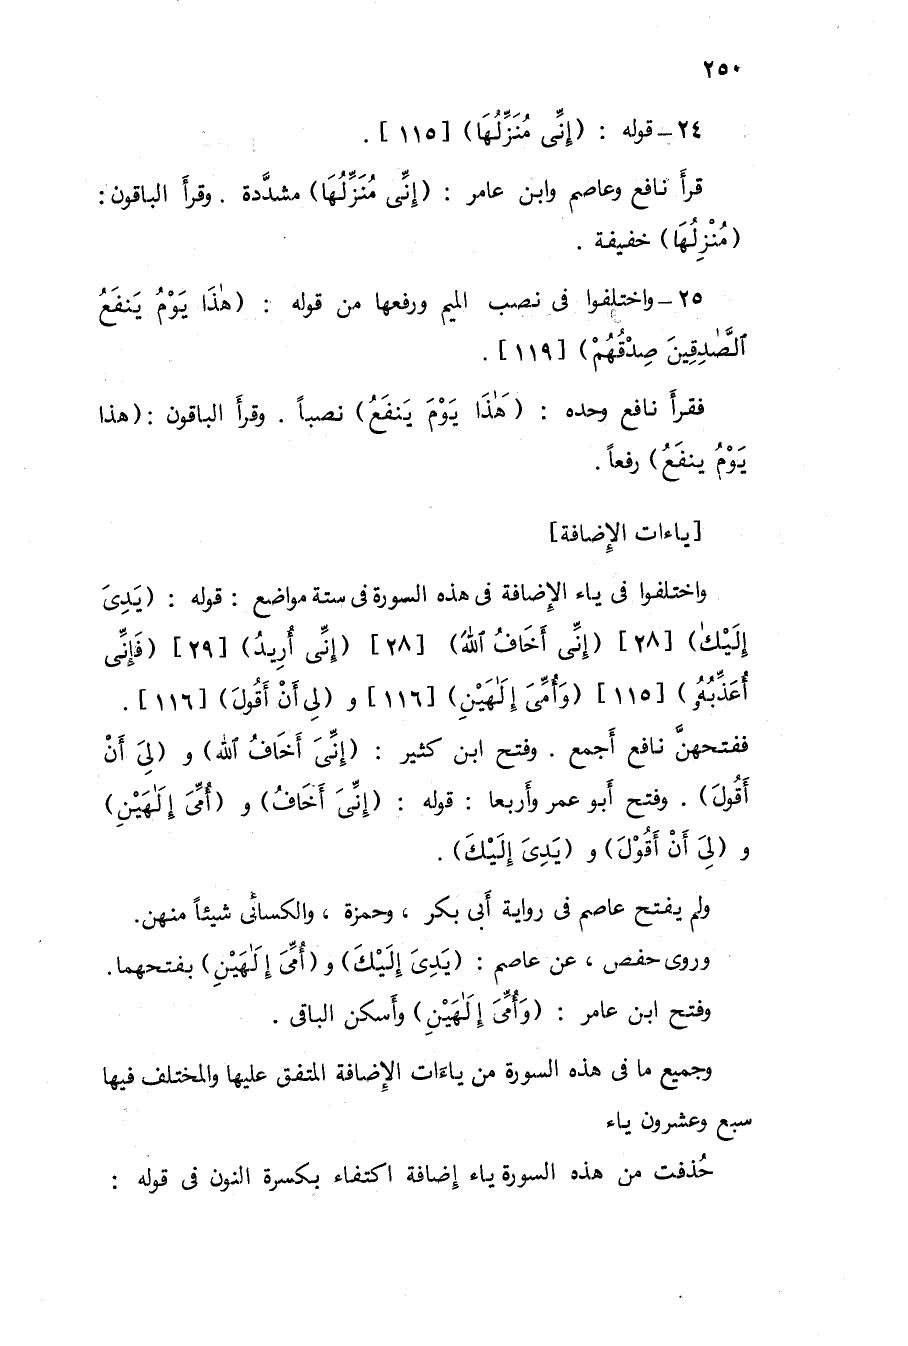 ٢٥٠
٢٤ــ قوله : (إِنِّى مُنَزِّلُهَا) [١١٥] .
قرأَ نافع وعاصم وابن عامر : (إِنِّى مُنَزِّلُهَا) مشدَّدة . وقرأَ الباقون :
(مُنْزِلُهَا) خفيفة .
٢٥ــ واختلفوا فى نصب الميم ورفعها من قوله : (هٰذَا يَوْمُ يَنفَعُ
ٱلصَّٰدِقِينَ صِدْقُهُمْ) [١١٩] .
فقرأَ نافع وحده : (هَٰذَا يَوْمَ يَنفَعُ) نصباً . وقرأَ الباقون : (هذا
يَوْمُ ينفَعُ) رفعاً .
[ياءات الإِضافة]
واختلفوا فى ياء الإِضافة فى هذه السورة فى ستة مواضع : قوله : (يَدِىَ
إِلَيْكَ) [٢٨] (إِنِّى أَخَافُ ٱللهَ) [٢٨] (إِنِّى أُرِيدُ) [٢٩] (فَإِنِّى
أُعَذِّبُهُۥ) [١١٥] (وَأُمِّىَ إِلَٰهَيْنِ) [١١٦] و (لِى أَنْ أَقُولَ) [١١٦] .
ففتحهنَّ نافع أَجمع . وفتح ابن كثير : (إِنِّىَ أَخَافُ ٱلله) و (لِىَ أَنْ
أَقُولَ) . وفتح أَبو عمر وأَربعا : قوله : (إِنِّىَ أَخَافُ) و (أُمِّىَ إِلَٰهَيْنِ)
و (لِىَ أَنْ أَقُوْلَ) و (يَدِىَ إِلَيْكَ) .
ولم يفتح عاصم فى رواية أَبى بكر ، وحمزة ، والكسائى شيئاً منهن.
وروى حفص ، عن عاصم : (يَدِىَ إِلَيْكَ) و (أُمِّىَ إِلَٰهَيْنِ) بفتحهما.
وفتح ابن عامر : (وَأُمِّىَ إِلَٰهَيْنِ) وأَسكن الباقى .
وجميع ما فى هذه السورة من ياءَات الإِضافة المتفق عليها والمختلف فيها
سبع وعشرون ياء
حُذفت من هذه السورة ياء إِضافة اكتفاء بكسرة النون فى قوله :